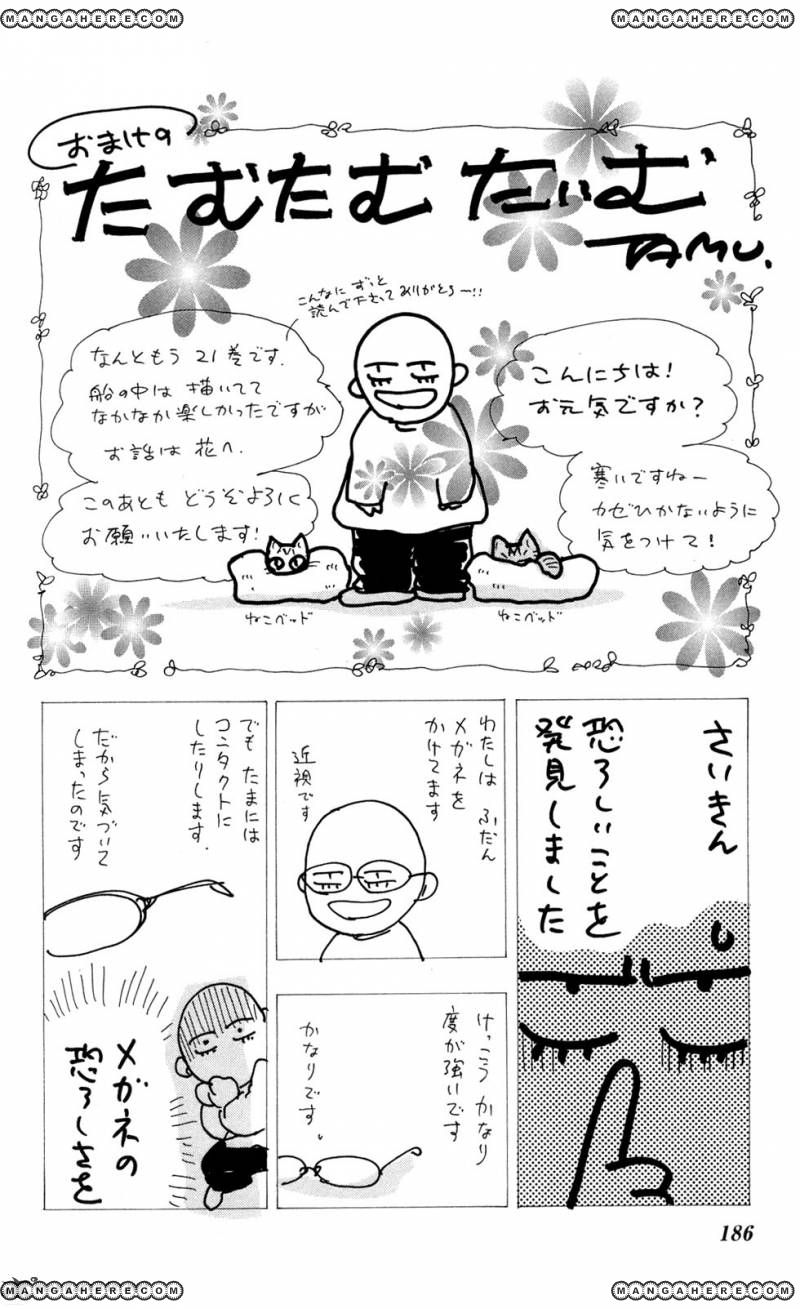 MANGAHERE.COM
MANGAHERE.COM
おまけの
たむたむたいむ
TAMU.
こんにちは!
お元気ですか?
寒いですねー
カゼひかないように
気をつけて!
こんなに ずっと
読んで下さって ありがとうー!!
なんともう 21巻です.
船の中は 描いてて
なかなか楽しかったですが
お話は 花へ.
このあとも どうぞよろしく
お願いいたします!
ねこベッド
ねこベッド
さいきん
恐ろしいことを
発見しました
わたしは ふだん
メガネを
かけてます
近視です
けっこう かなり
度が強いです
かなりです。
でも たまには
コンタクトに
したりします.
だから気づいて
しまったのです
メガネの
恐ろしさを
186
MANGAHERE.COM
MANGAHERE.COM